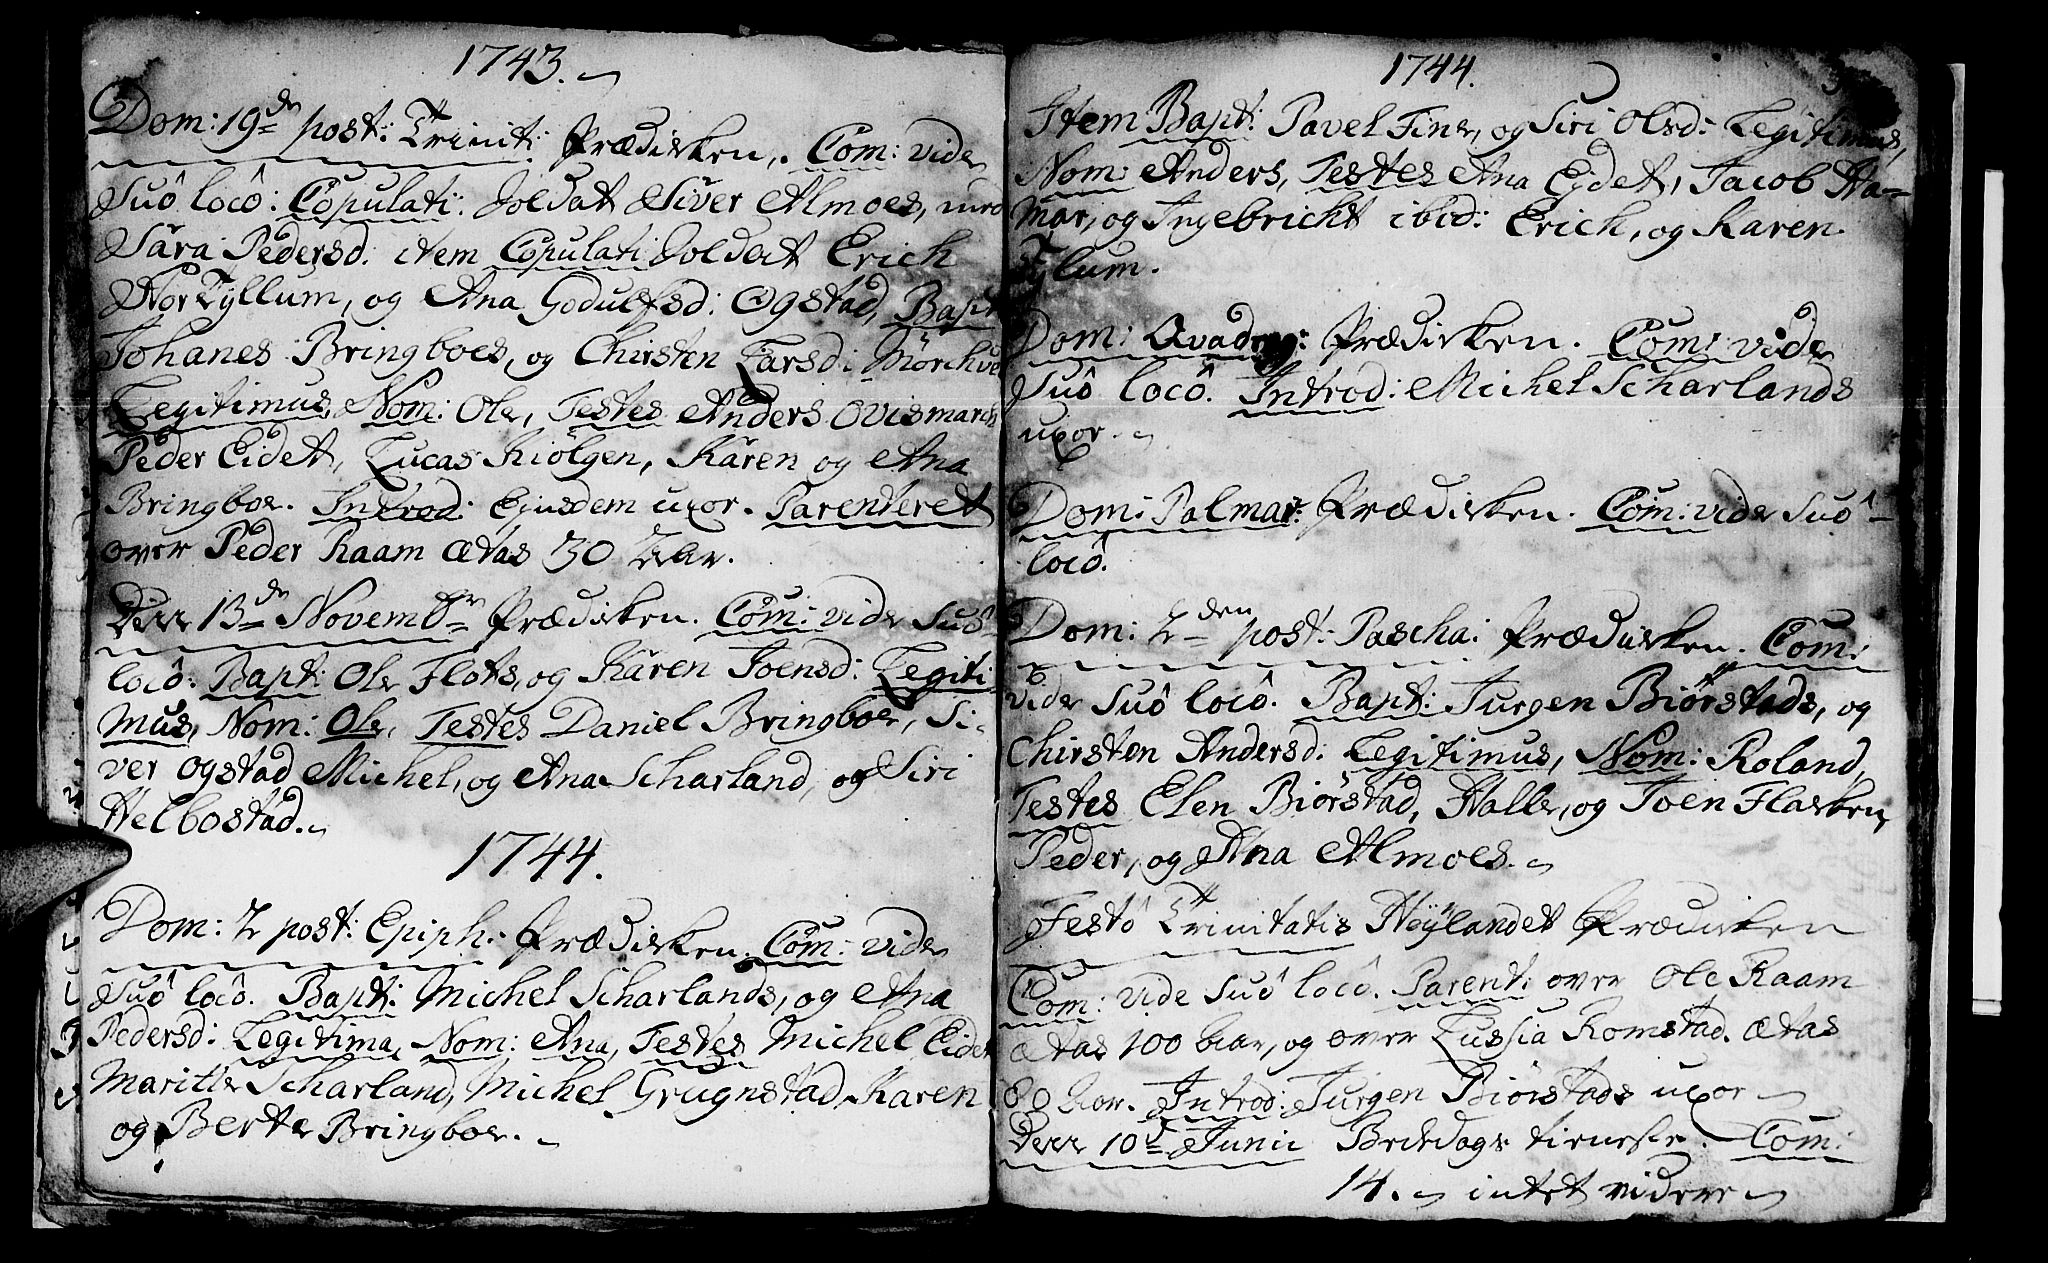 1743.
Dom: 19de post: Trinit: Prædicken. Com: vide
Suô locô: Copulati: Soldat Siver Almoes, und
Sara Pedersd: item Copulati Soldat Erich
Nor Tyllum, og Ana Godulfsd: Ogstad, Bapt
Johanes Bringboes, og Chirsten Larsd: Mörchve
Legitimus, Nom: Ole, Testes Anders Ovismarch
Peder Eidet, Lucas Kiölgen, Karen og Ana
Bringboe. Introd: Ejusdem uxor. Parenteret
over Peder Raam ætas 30 Aar.
Den 13de Novembr Prædicken. Com: vide Suô
locô: Bapt: Ole Flots, og Karen Joensd: Legiti
mus, Nom: Ole, Testes Daniel Bringboe, Si-
ver Ogstad Michel, og Ana Scharland, og Siri
Helbostad.
1744.
Dom: 2 post: Epiph: Prædicken. Com: vide
Suô locô. Bapt: Michel Scharlands, og Ana
Pedersd: Legitima, Nom: Ana, Testes Michel Eidet
Maritte Scharland, Michel Grugnstad, Karen
og Berte Bringboe.
1744.
Item Bapt: Pavel Fine, og Siri Olsd: Legitimus,
Nom: Anders, Testes Ana Eidet, Jacob Ha-
mar, og Ingebricht ibid: Erich, og Karen
Tylum.
Dom: Qvadrag: Prædicken. Com: vide
Suô locô. Introd: Michel Scharlands
uxor.
Dom: Palmar: Prædicken. Com: vide Suô
locô.
Dom: 2den post: Pascha: Prædicken. Com:
vide Suô locô. Bapt: Jurgen Biørstads, og
Chirsten Andersd: Legitimus, Nom: Roland,
Testes Elen Biørstad, Halle, og Joen Flasken,
Peder, og Ana Almoes.
Festô Trinitatis Höylandet Prædicken
Com: vide Suô locô. Parent: over Ole Raam
ætas 100 Aar, og over Lussia Romstad. ætas
80 Aar. Introd: Jurgen Biørstads uxor
Den 10de Junii Bededags tieneste. Com:
14. intet videre